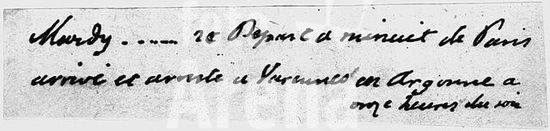 Mardy ..... 20 Depart a minuit de Paris
arrivé et arresté a Varennes en Argonne a
onze heures du soir